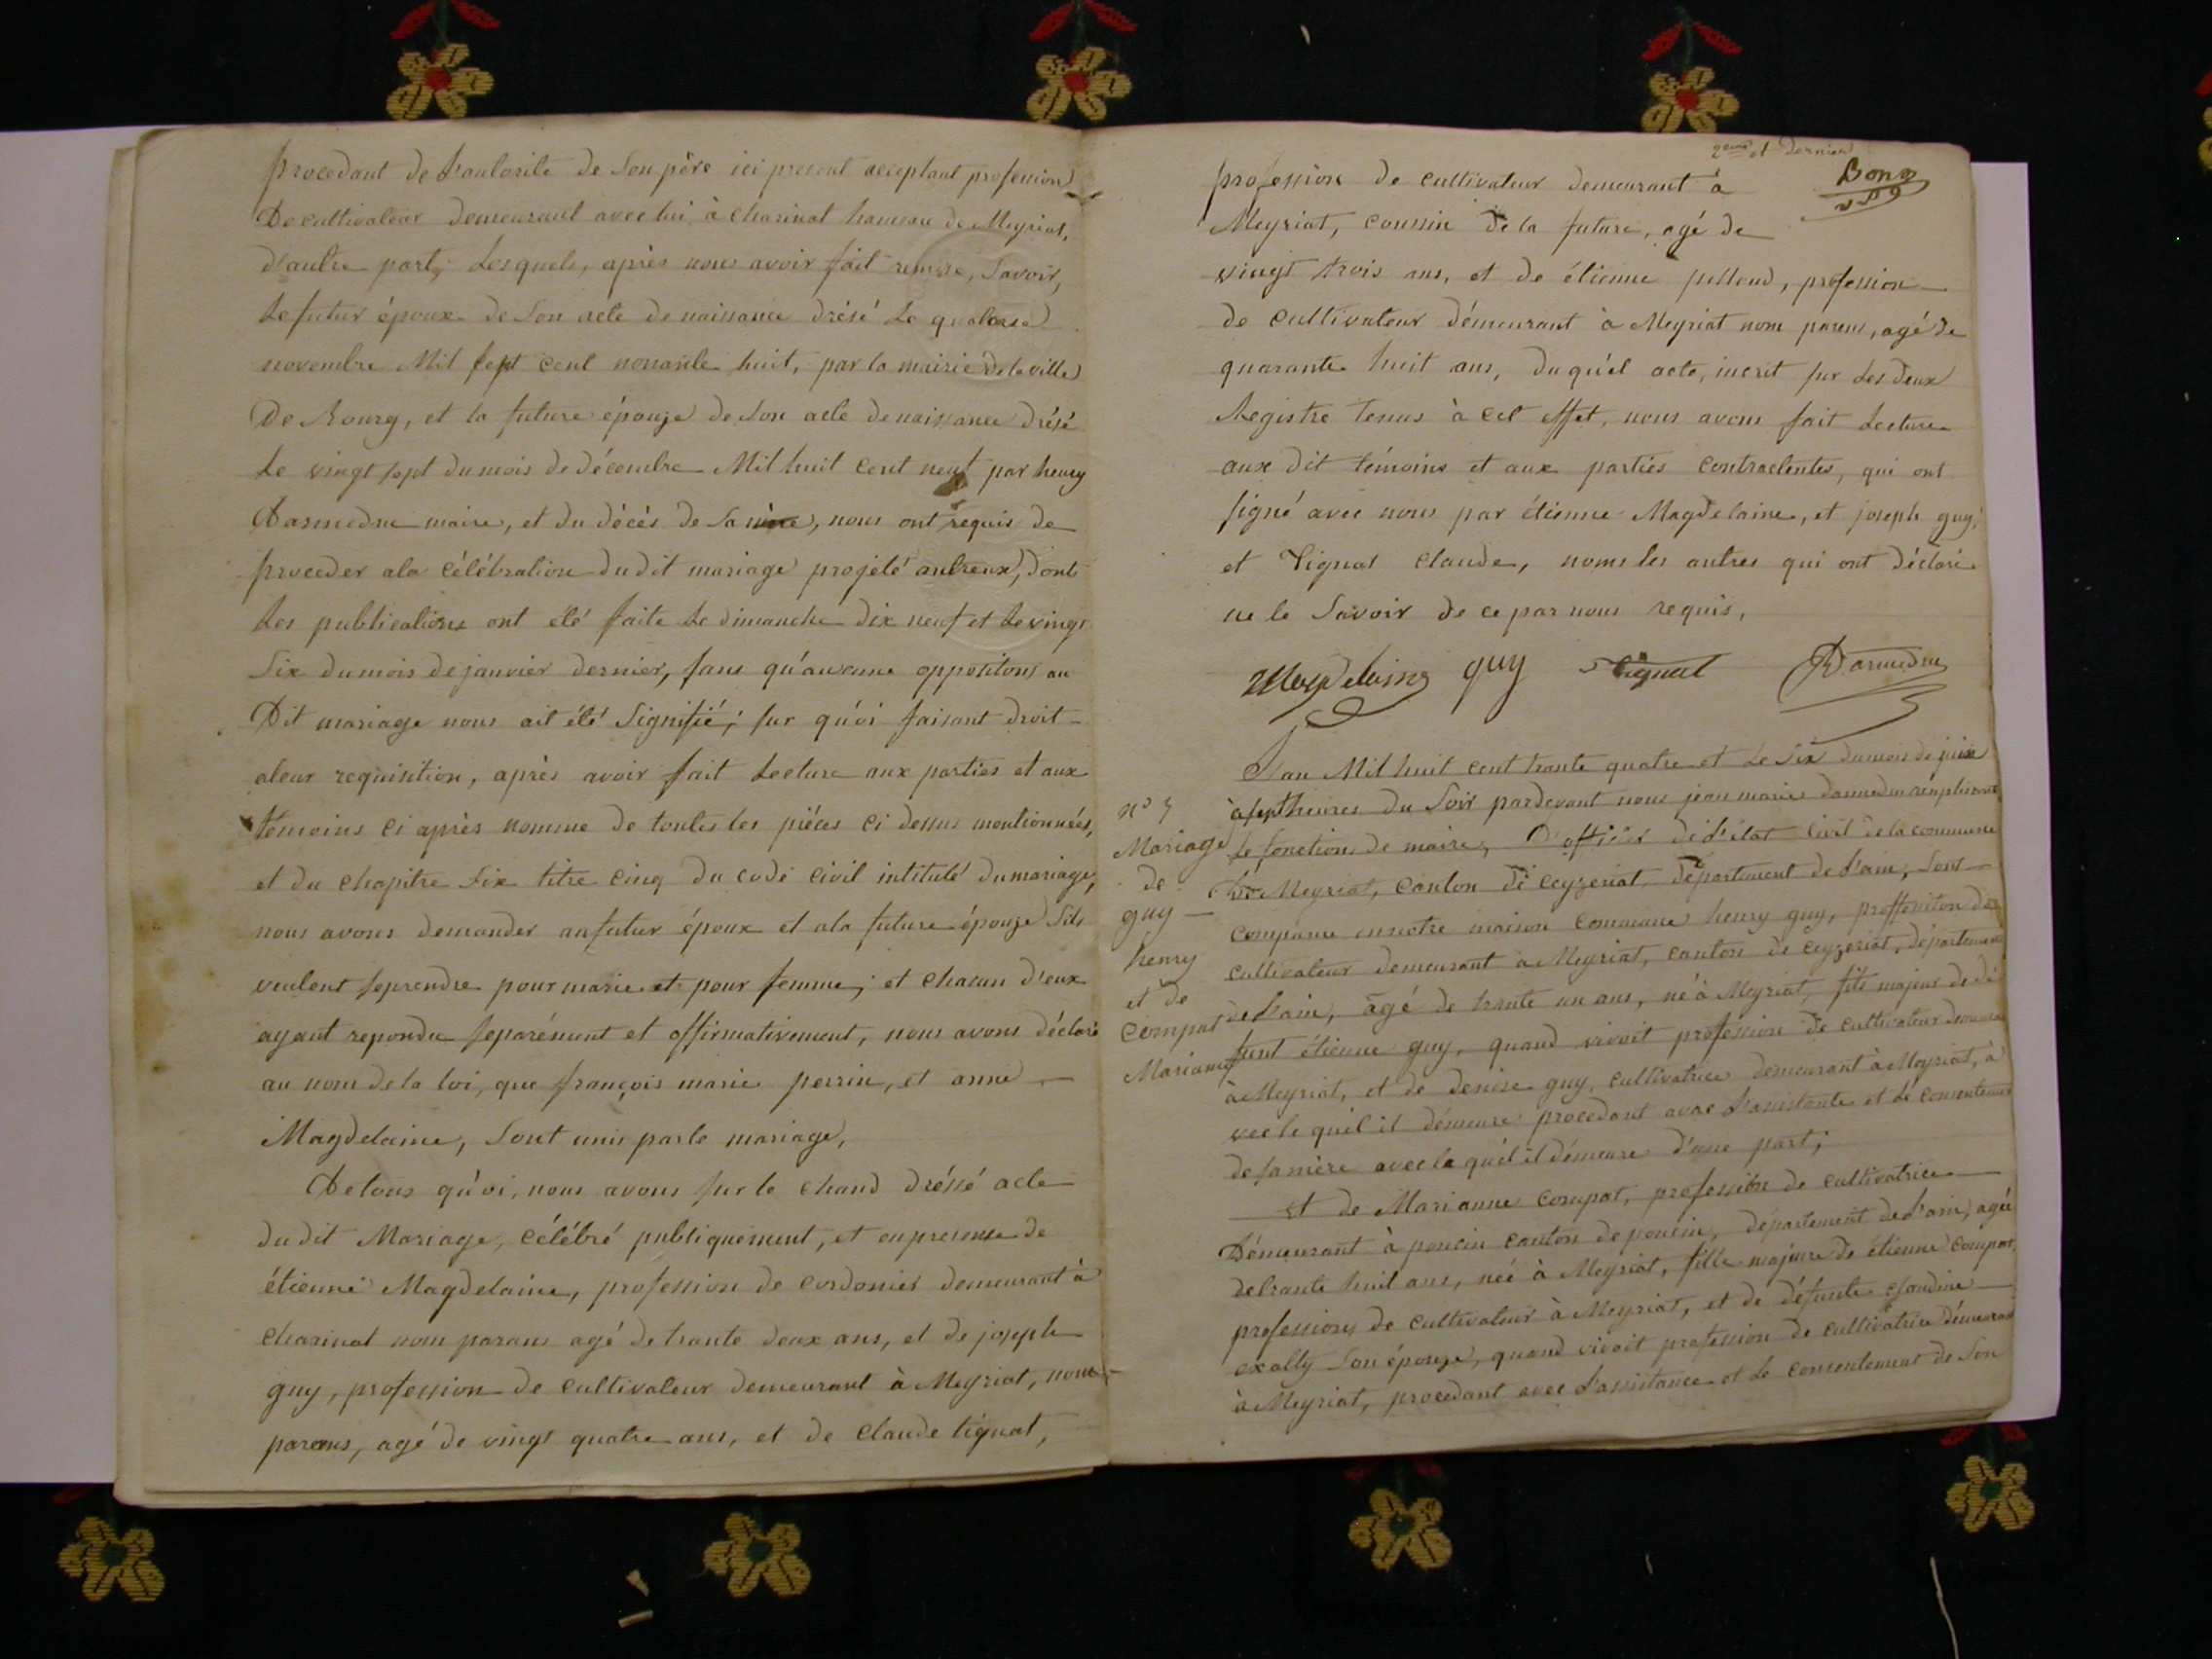 procedant de l'autorite de son père ici present acceptant profession
De cultivateur demeurant avec lui à charinat hameau de Meyriat,
d'autre part; Lesquels, après nous avoir fait remise, Savoir,
Le futur époux de Son acte de naissance drésé Le quatorse
novembre Mil sept cent nonante huit, par la mairie de la ville
De Bourg, et la future épouse de Son acte de naissance drésé
Le vingt sept du mois de décembre Mil huit cent neuf par henry
Darmedru maire, et du décès de Sa mère, nous ont requis de
proceder ala célébration du dit mariage projeté antreux, dont
Les publications ont été faite Le dimanche dix neuf et Le vingt
Six du mois de janvier dernier, sans qu'aucune oppositons au
Dit mariage nous ait été Signifié; sur qu'oi faisant droit
aleur requisition, après avoir fait Lecture aux parties et aux
témoins ci après nomme de toutes les piéces ci dessus mentionnées,
et du chapitre Six titre cinq du code civil intitulé du mariage,
nous avons demander au futur époux et ala future épouse Sils
veulent se prendre pour marie et pour femme; et chacun d'eux
ayant repondu separément et affirmativement, nous avons déclaré
au nom de la loi, que françois marie perrin, et anne
Magdelaine, Sont unis par le mariage,
De tous qu'oi, nous avons sur le chand dréssé acte
du dit Mariage, célébré publiquement, et en presence de
étienne Magdelaine, profession de cordonier demeurant à
charinat nom parans agé de trante deux ans, et de joseph
guy, profession de cultivateur demeurant à Meyriat, nom
parans, agé de vingt quatre ans, et de Claude tignat,
2eme et Dernier
profession de cultivateur demeurant à
Meyriat, coussin de la future, agé de
vingt trois ans, et de étienne pelloud, profession
de cultivateur démeurant à Meyriat nom parens, agé de
quarante huit ans, du quél acte, inscrit sur Les deux
Registre tenus à cet effet, nous avons fait Lecture
aux dit témoins et aux parties contractentes, qui ont
signé avec nous par étienne Magdelaine, et joseph guy,
et Tignat Claude, noms les autres qui ont déclaré
ne le Savoir de ce par nous requis,
Magdelaine guy Tignat Darmedru
L'an Mil huit cent trante quatre et Le Six du mois de juin
à sept heures du Soir pardevant nous jean marie darmedru remplissant
Le fonction de maire, D'officier de L'état Civil de la commune
De Meyriat, canton de ceyzeriat, département de L'ain, Sont
comparue en notre maison commune henry guy, proffession de
cultivateur demeurant à Meyriat, canton de ceyzeriat, département
de L'ain, agé de trante un ans, né à Meyriat, fils majeur de dé
funt étienne guy, quand vivoit profession de cultivateur demeurant
à Meyriat, et de denise guy, cultivatrice demeurant à Meyriat, à
vec le quél il démeure procedant avac L'assistante et Le consentement
de sa mère avec la quél il démeure d'une part;
Et de Marianne compat, profession de cultivatrice
Démeurant à poncin canton de poncin, département de L'ain, agée
de trante huit ans, née à Meyriat, fille majeure de étienne compat,
profession de cultivateur à Meyriat, et de défunte claudine
Son épouse, quand vivoit profession de cultivatrice démeurant
à Meyriat, procedant avec L'assistance et Le consentement de Son
n° 5
Mariage
de
guy
henry
et de
compat
Marianne